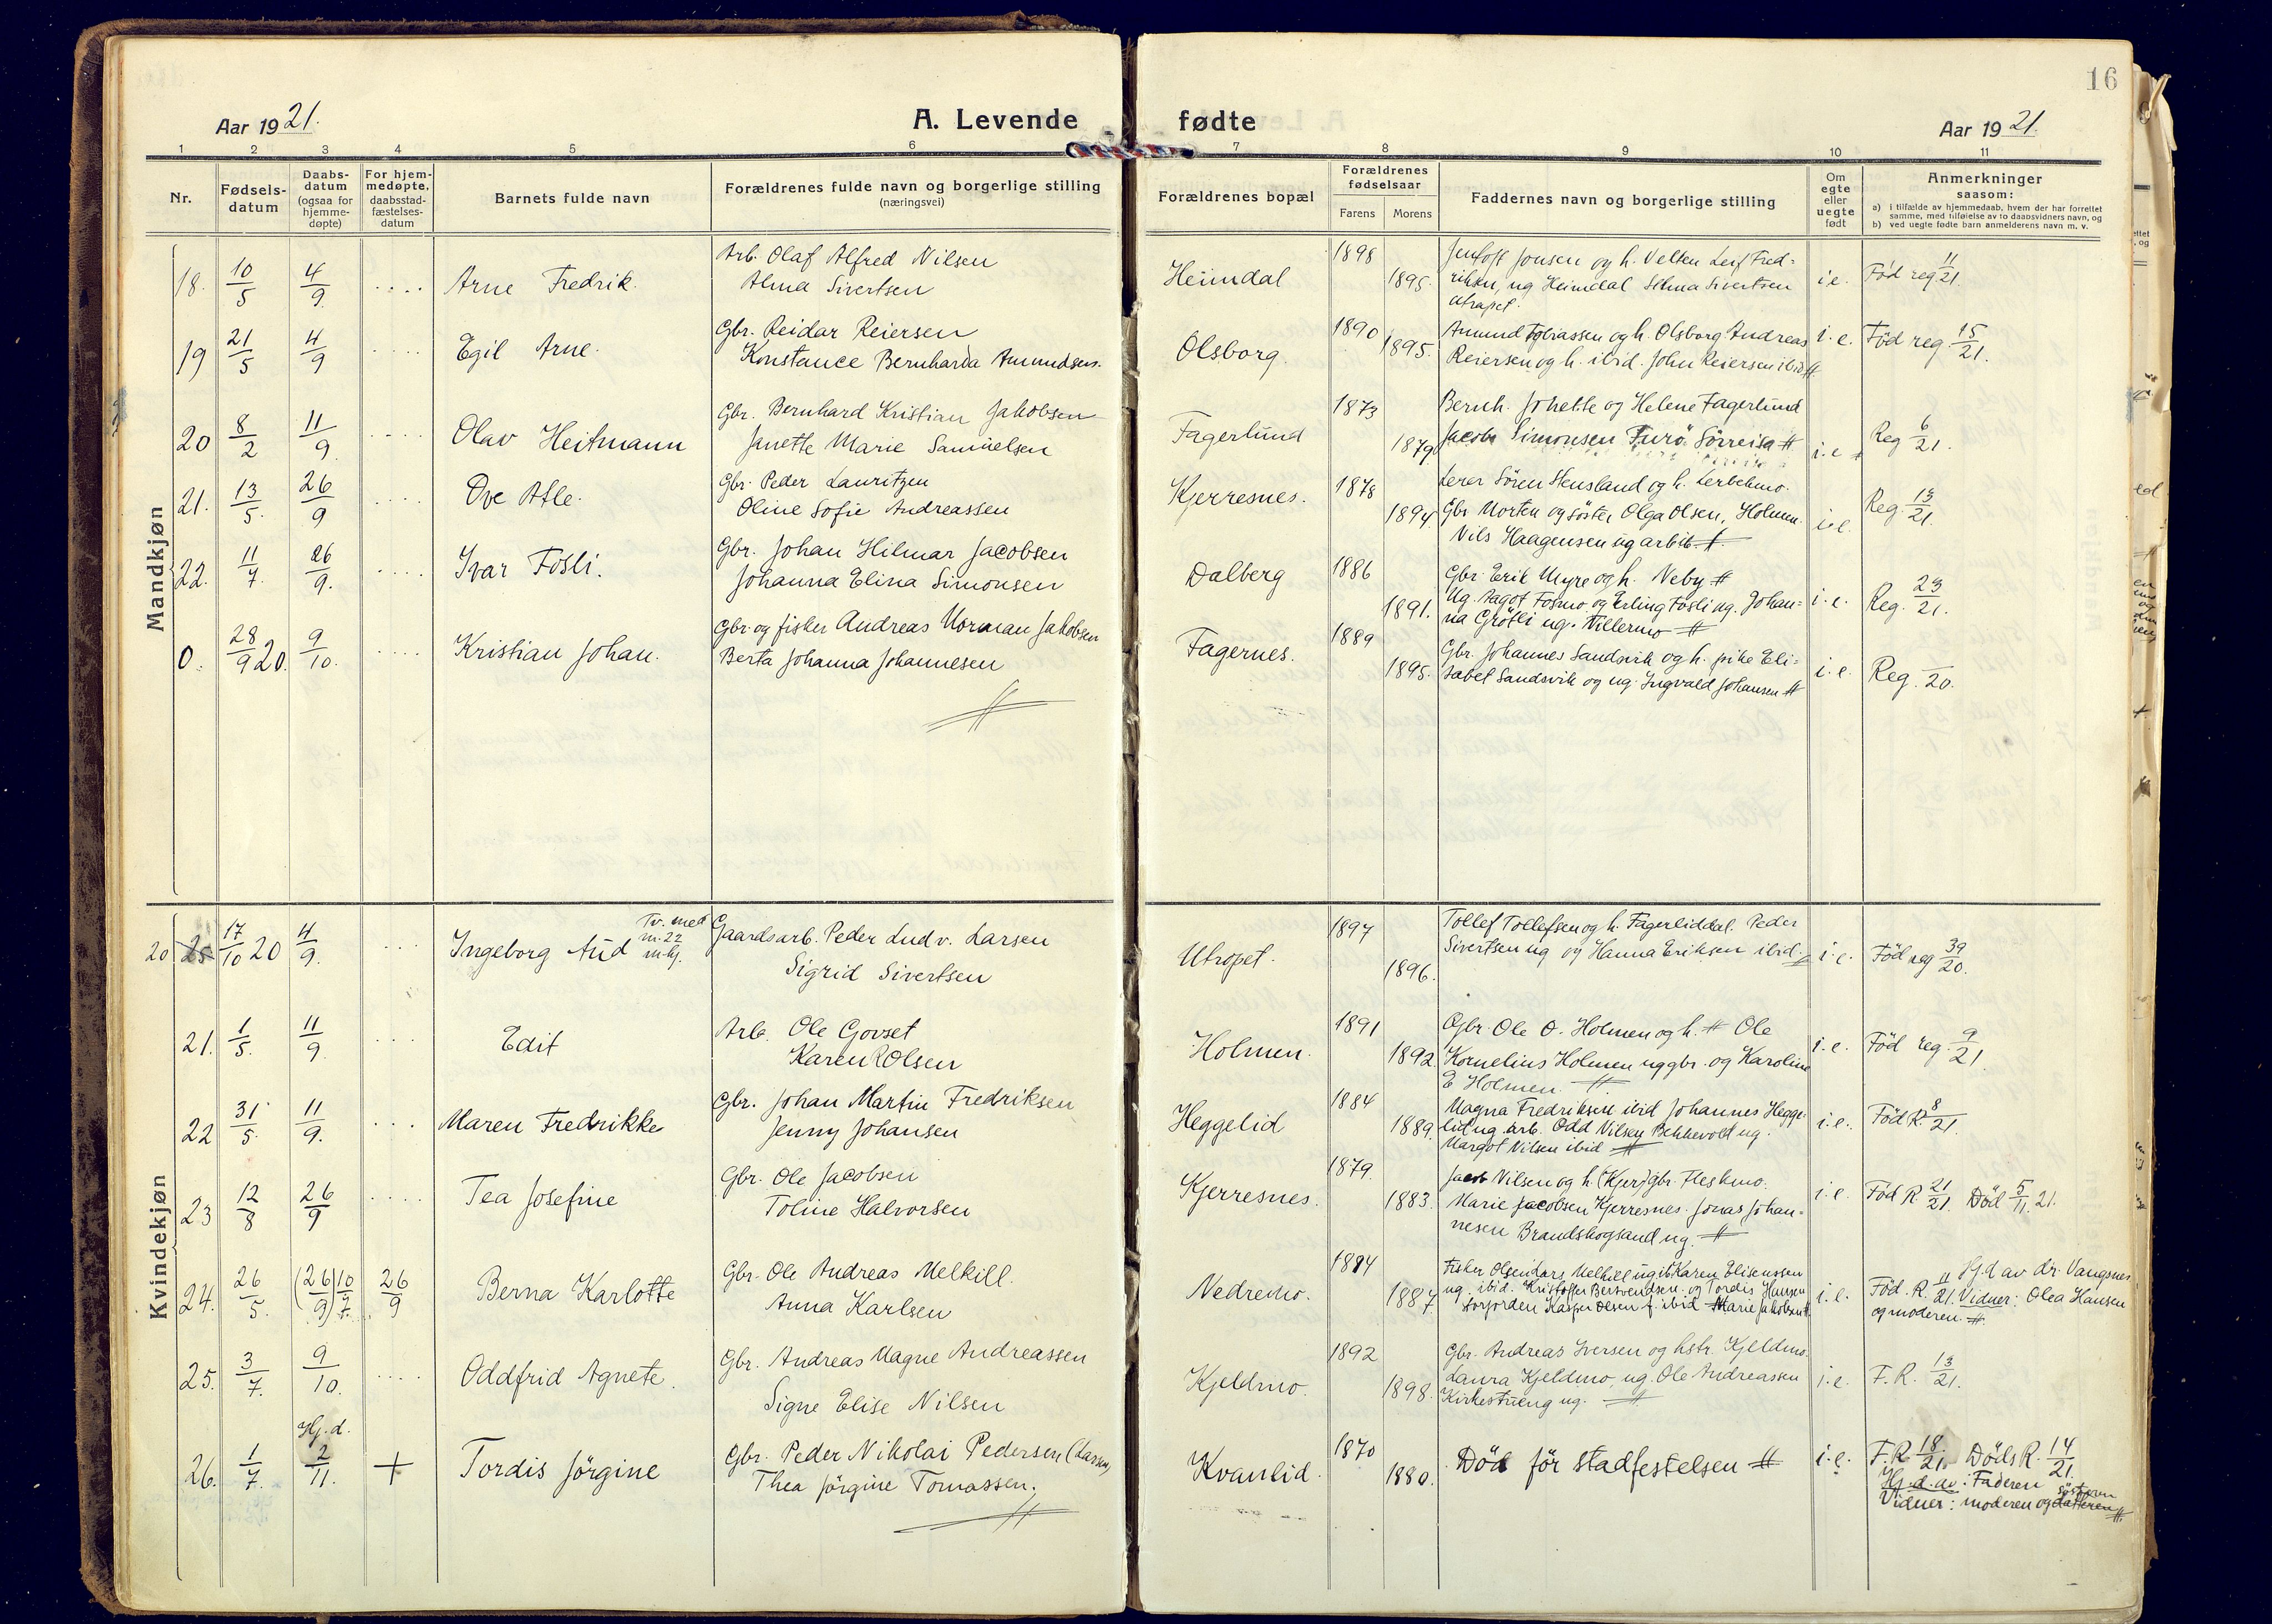 16
Aar 1921.
A. Levende
fødte
Aar 1921.
1 2 3 4 5 6 7 8 9 10 11
Nr.
Fødsels-
datum
Daabs-
datum
(ogsaa for
hjemme-
døpte)
For hjem-
medøpte,
daabsstad-
fæstelses-
datum
Barnets fulde navn
Forældrenes fulde navn og borgerlige stilling
(næringsvei)
Forældrenes bopæl
Forældrenes
fødselsaar
Farens Morens
Faddernes navn og borgerlige stilling
Om
egte
eller
uegte
født
Anmerkninger
saasom:
a) i tilfælde av hjemmedaab, hvem der har forrettet
samme, med tilføielse av to daabsvidners navn, og
b) ved uegte fødte barn anmelderens navn m. v.
Mandkjøn
18. 10/5 4/9 .... Arne Fredrik.
Arb. Olaf Alfred Nilsen
Alma Sivertsen
Heimdal 1898 1895.
Jensoff Jonsen og h. Velten Leif Fred-
riksen, ug Heimdal Selma Sivertsen
Utropet.
i.e. Föd reg 11/21.
19 21/5 4/9 .... Egil Arne.
Gbr. Reidar Reiersen
Konstance Bernharda Amundsen.
Olsborg. 1890 1895.
Amund Tobiassen og h. Olsborg Andreas
Reiersen og h. ibid. John Reiersen ibid #.
i.e. Föd reg. 15/21.
20 8/2 11/9. .... Olav Heitmann
Gbr. Bernhard Kristian Jakobsen
Janette Marie Samuelsen
Fagerlund 1873 1879
Bernh. Johelle og Helene Fagerlund
Jacob Simonsen Furö Sörreisa #
i.e Reg 6/21.
21. 13/5. 26/9 .... Ove Atle.
Gbr. Peder Lauritzen
Oline Sofie Andreassen
Kjerresnes. 1878 1894
Lerer Sören Stensland og h. Lerbekmo.
Gbr Morten og söster Olga Olsen, Holmen.
Nils Haagensen ug arbib. #
i.e. Reg. 13/21.
22. 11/7. 26/9. .... Ivar Fosli.
Gbr. Johan Hilmar Jacobsen
Johanna Elina Simonsen
Dalberg 1886 1891.
Gbr. Erik Myre og h. Neby #
Ug. Aagot Fosmo og Erling Fosli ug. Johan-
na Grötli ug. Villermo #
i.e. Reg. 23/21.
0. 28/9 20. 9/10. .... Kristian Johan.
Gbr. og fisker Andreas Norman Jakobsen
Berta Johanna Johannesen
Fagernes. 1889 1895.
Gbr. Johannes Sandsvik og h. pike Eli-
sabet Sandsvik og ug. Ingvald Johansen #
i.e. Reg. —/20.
Kvindekjøn
20 25 17/10 20 4/9. ... Ingeborg Aud Tv. med
m. 22
mkj.
Gaardsarb. Peder Ludv. Larsen
Sigrid Sivertsen
Utropet. 1897 1896.
Tollef Tollefsen og h. Fagerliddal. Peder
Sivertsen ug og Hanna Eriksen ibid.
i.e. Föd reg 39/20.
21. 1/5. 11/9. ... Edit
Arb. Ole Govset
Karen Olsen
Holmen. 1891 1892.
Gbr. Ole O. Holmen og h. # Ole
Kornelius Holmen ug gbr. og Karoline
E Holmen. #
i.e. Föd reg. 9/21.
22 31/5. 11/9. ... Maren Fredrikke
Gbr. Johan Martin Fredriksen
Jenny Johansen
Heggelid 1884 1889.
Magna Fredriksen ibid Johannes Hegge-
lid ug. arb. Odd Nilsen Bekkevold ug.
Margot Nilsen ibid #
i.e. Föd R. 8/21.
23 12/8 26/9 .... Tea Josefine
Gbr. Ole Jacobsen
Toline Halvorsen
Kjerresnes. 1879. 1883.
Jacob Nilsen og h. (Kjer) gbr. Fleskmo.
Marie Jacobsen Kjerresnes. Jonas Johan-
nesen Brandskogsand ug. #
i.e. Föd R 21/21. Död 5/11. 21.
24. 26/5. (26/9) 10/7. 26/9 Berna Karlotte
Gbr. Ole Andreas Melkill.
Anna Karlsen
Nedremo. 1884 1887.
Fisker Olsen Lars Melkill ug ib Karen Eliseussen
ug. ibid. Kristoffer Bersvendsen og Tordis Hansen
Sörjorden Kasper Olsen f. ibid Marie Jakobsen #
i.e. Föd. R. 11/21. Hj.d av dr. Vangsnes
Vidner: Olea Hansen
og moderen. #
25. 3/7. 9/10. .... Oddfrid Agnete.
Gbr. Andreas Magne Andreassen
Signe Elise Nilsen
Kjeldmo. 1892 1898.
Gbr. Andreas Iversen og hstr. Kjeldmo.
Laura Kjeldmo ug. Ole Andreassen
Kirkestueng ug. #
i.e. F.R. 13/21.
26. 1/7. Hj.d. 2/11. + Tordis Jörgine
Gbr. Peder Nikolai Pedersen (Larsen)
Thea Jörgine Tomassen.
Kvanlid. 1870 1880.
Död för stadfestelsen #
i.e. F.R. 18/21. Döds R. 14/21.
Hj.d. av: Faderen
Vidner: moderen og datteren söstren #.